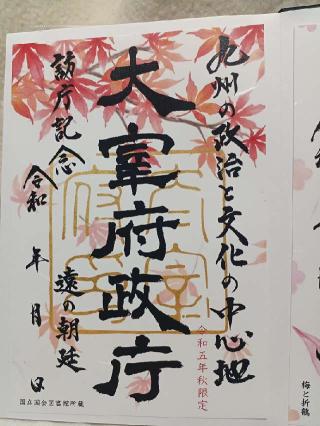 九州の政治と文化の中心地
大宰府政庁
訪庁記念
令和 年 月 日
遠の朝廷
令和五年秋限定
国立国会図書館所蔵
梅と折鶴